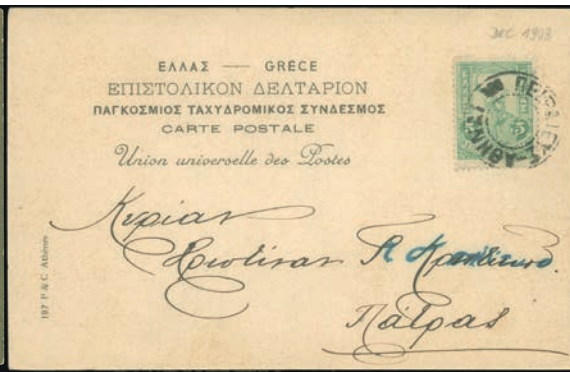 DEC 1903
ΕΛΛΑΣ — GRÈCE
ΕΠΙΣΤΟΛΙΚΟΝ ΔΕΛΤΑΡΙΟΝ
ΠΑΓΚΟΣΜΙΟΣ ΤΑΧΥΔΡΟΜΙΚΟΣ ΣΥΝΔΕΣΜΟΣ
CARTE POSTALE
Union universelle des Postes
ΕΛΛΑΣ
5 5
ΠΕΙΡΑΙΕΥΣ-ΑΘΗΝΑΙ
Κυρίαν
Φωτίναν
Πάτρας
197 P & C Athènes